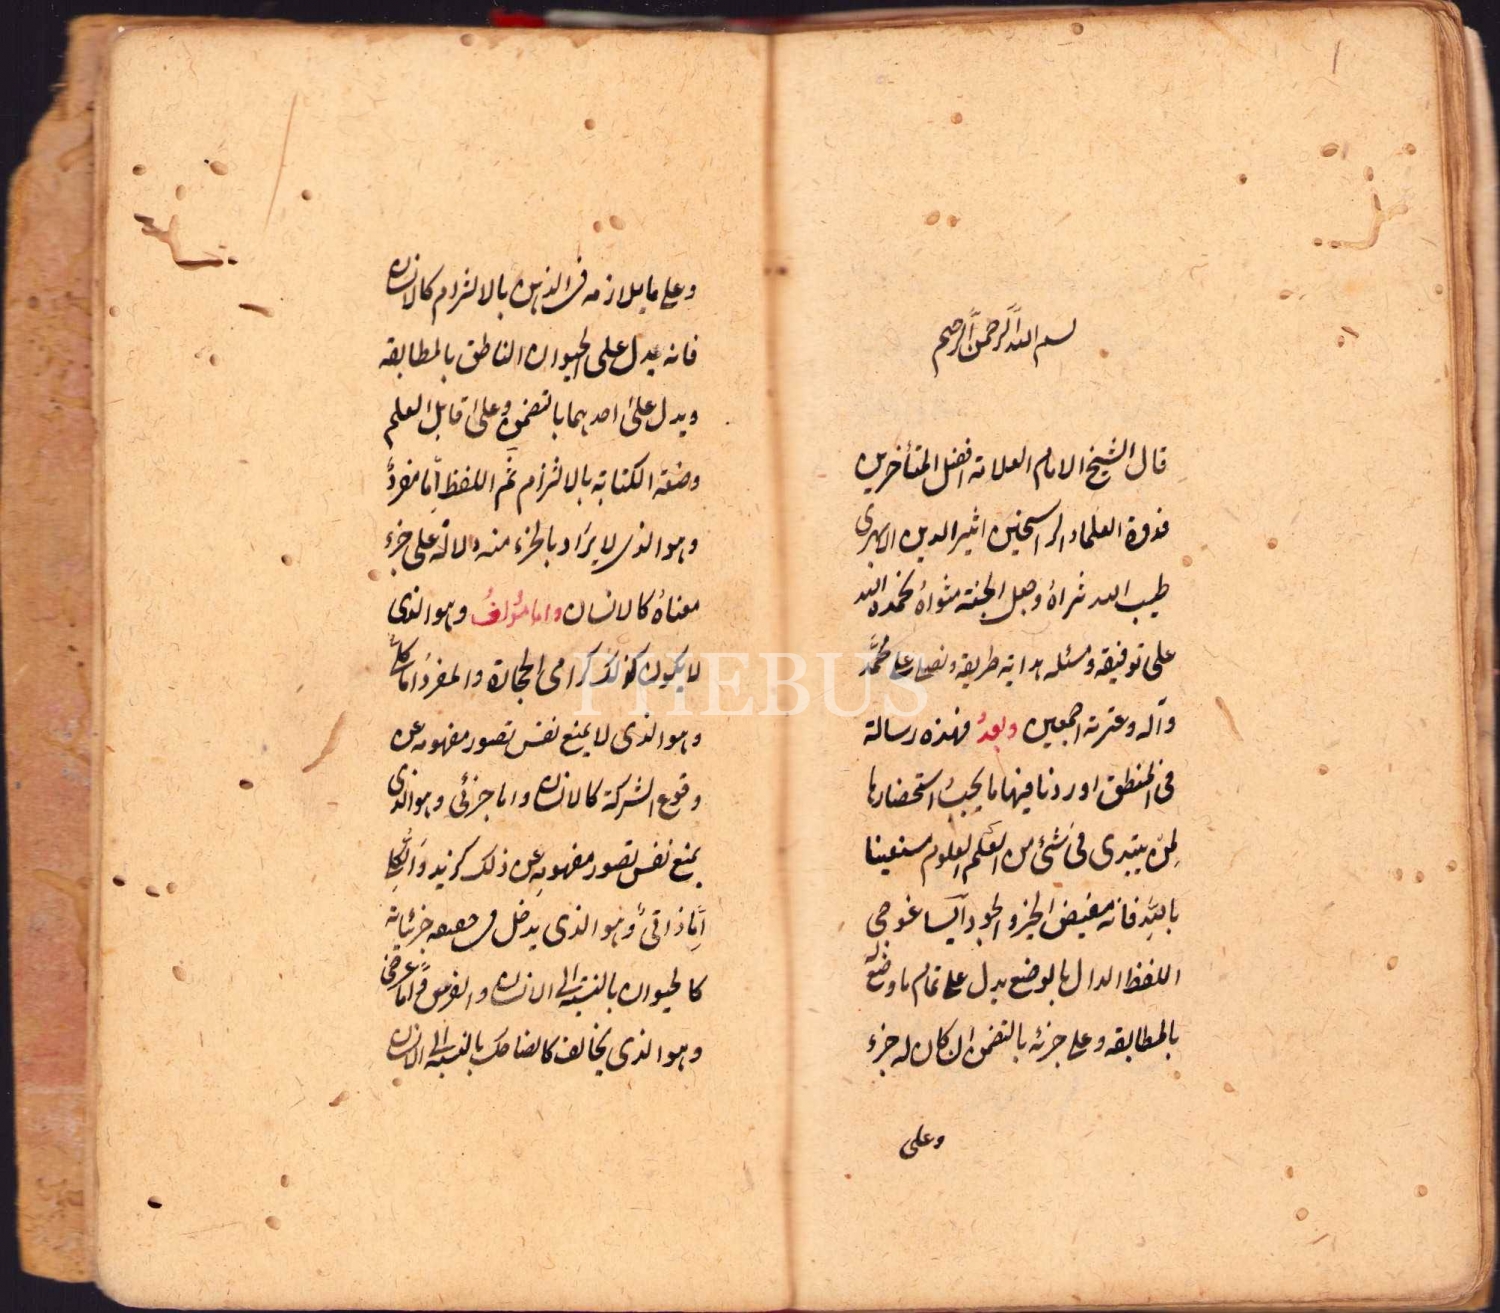 بسم الله الرحمن الرحيم
قال الشيخ الامام العلامة افضل المتأخرين
قدوة العلماء الراسخين اثير الدين الابهرى
طيب الله ثراه وجعل الجنة مثواه نحمد الله
على توفيقه ونسئله هداية طريقه ونصلى على محمد
وآله وعترته اجمعين وبعد فهذه رسالة
فى المنطق اوردنا فيها ما يجب استحضارها
لمن يبتدى فى شئ من العلوم مستعينا
بالله فانه مفيض الخير والجود ايساغوجى
اللفظ الدال بالوضع يدل على تمام ما وضع له
بالمطابقه وعلى جزئه بالتضمن ان كان له جزء
وعلى
وعلى ما يلازمه فى الذهن بالالتزام كالانسان
فانه يدل على الحيوان الناطق بالمطابقه
ويدل على احدهما بالتضمن وعلى قابل العلم
وصنعة الكتابة بالالتزام ثم اللفظ اما مفرد
وهو الذى لا يراد بالجزء منه دلالة على جزء
معناه كالانسان واما مؤلف وهو الذى
لا يكون كذلك كرامى الحجارة والمفرد اما كلى
وهو الذى لا يمنع نفس تصور مفهومه عن
وقوع الشركة كالانسان واما جزئى وهو الذى
يمنع نفس تصور مفهومه عن ذلك كزيد والكلى
اما ذاتى وهو الذى يدخل فى حقيقة جزئياته
كالحيوان بالنسبة الى الانسان والفرس واما عرضى
وهو الذى يخالفه كالضاحك بالنسبة الى الانسان
PHEBUS